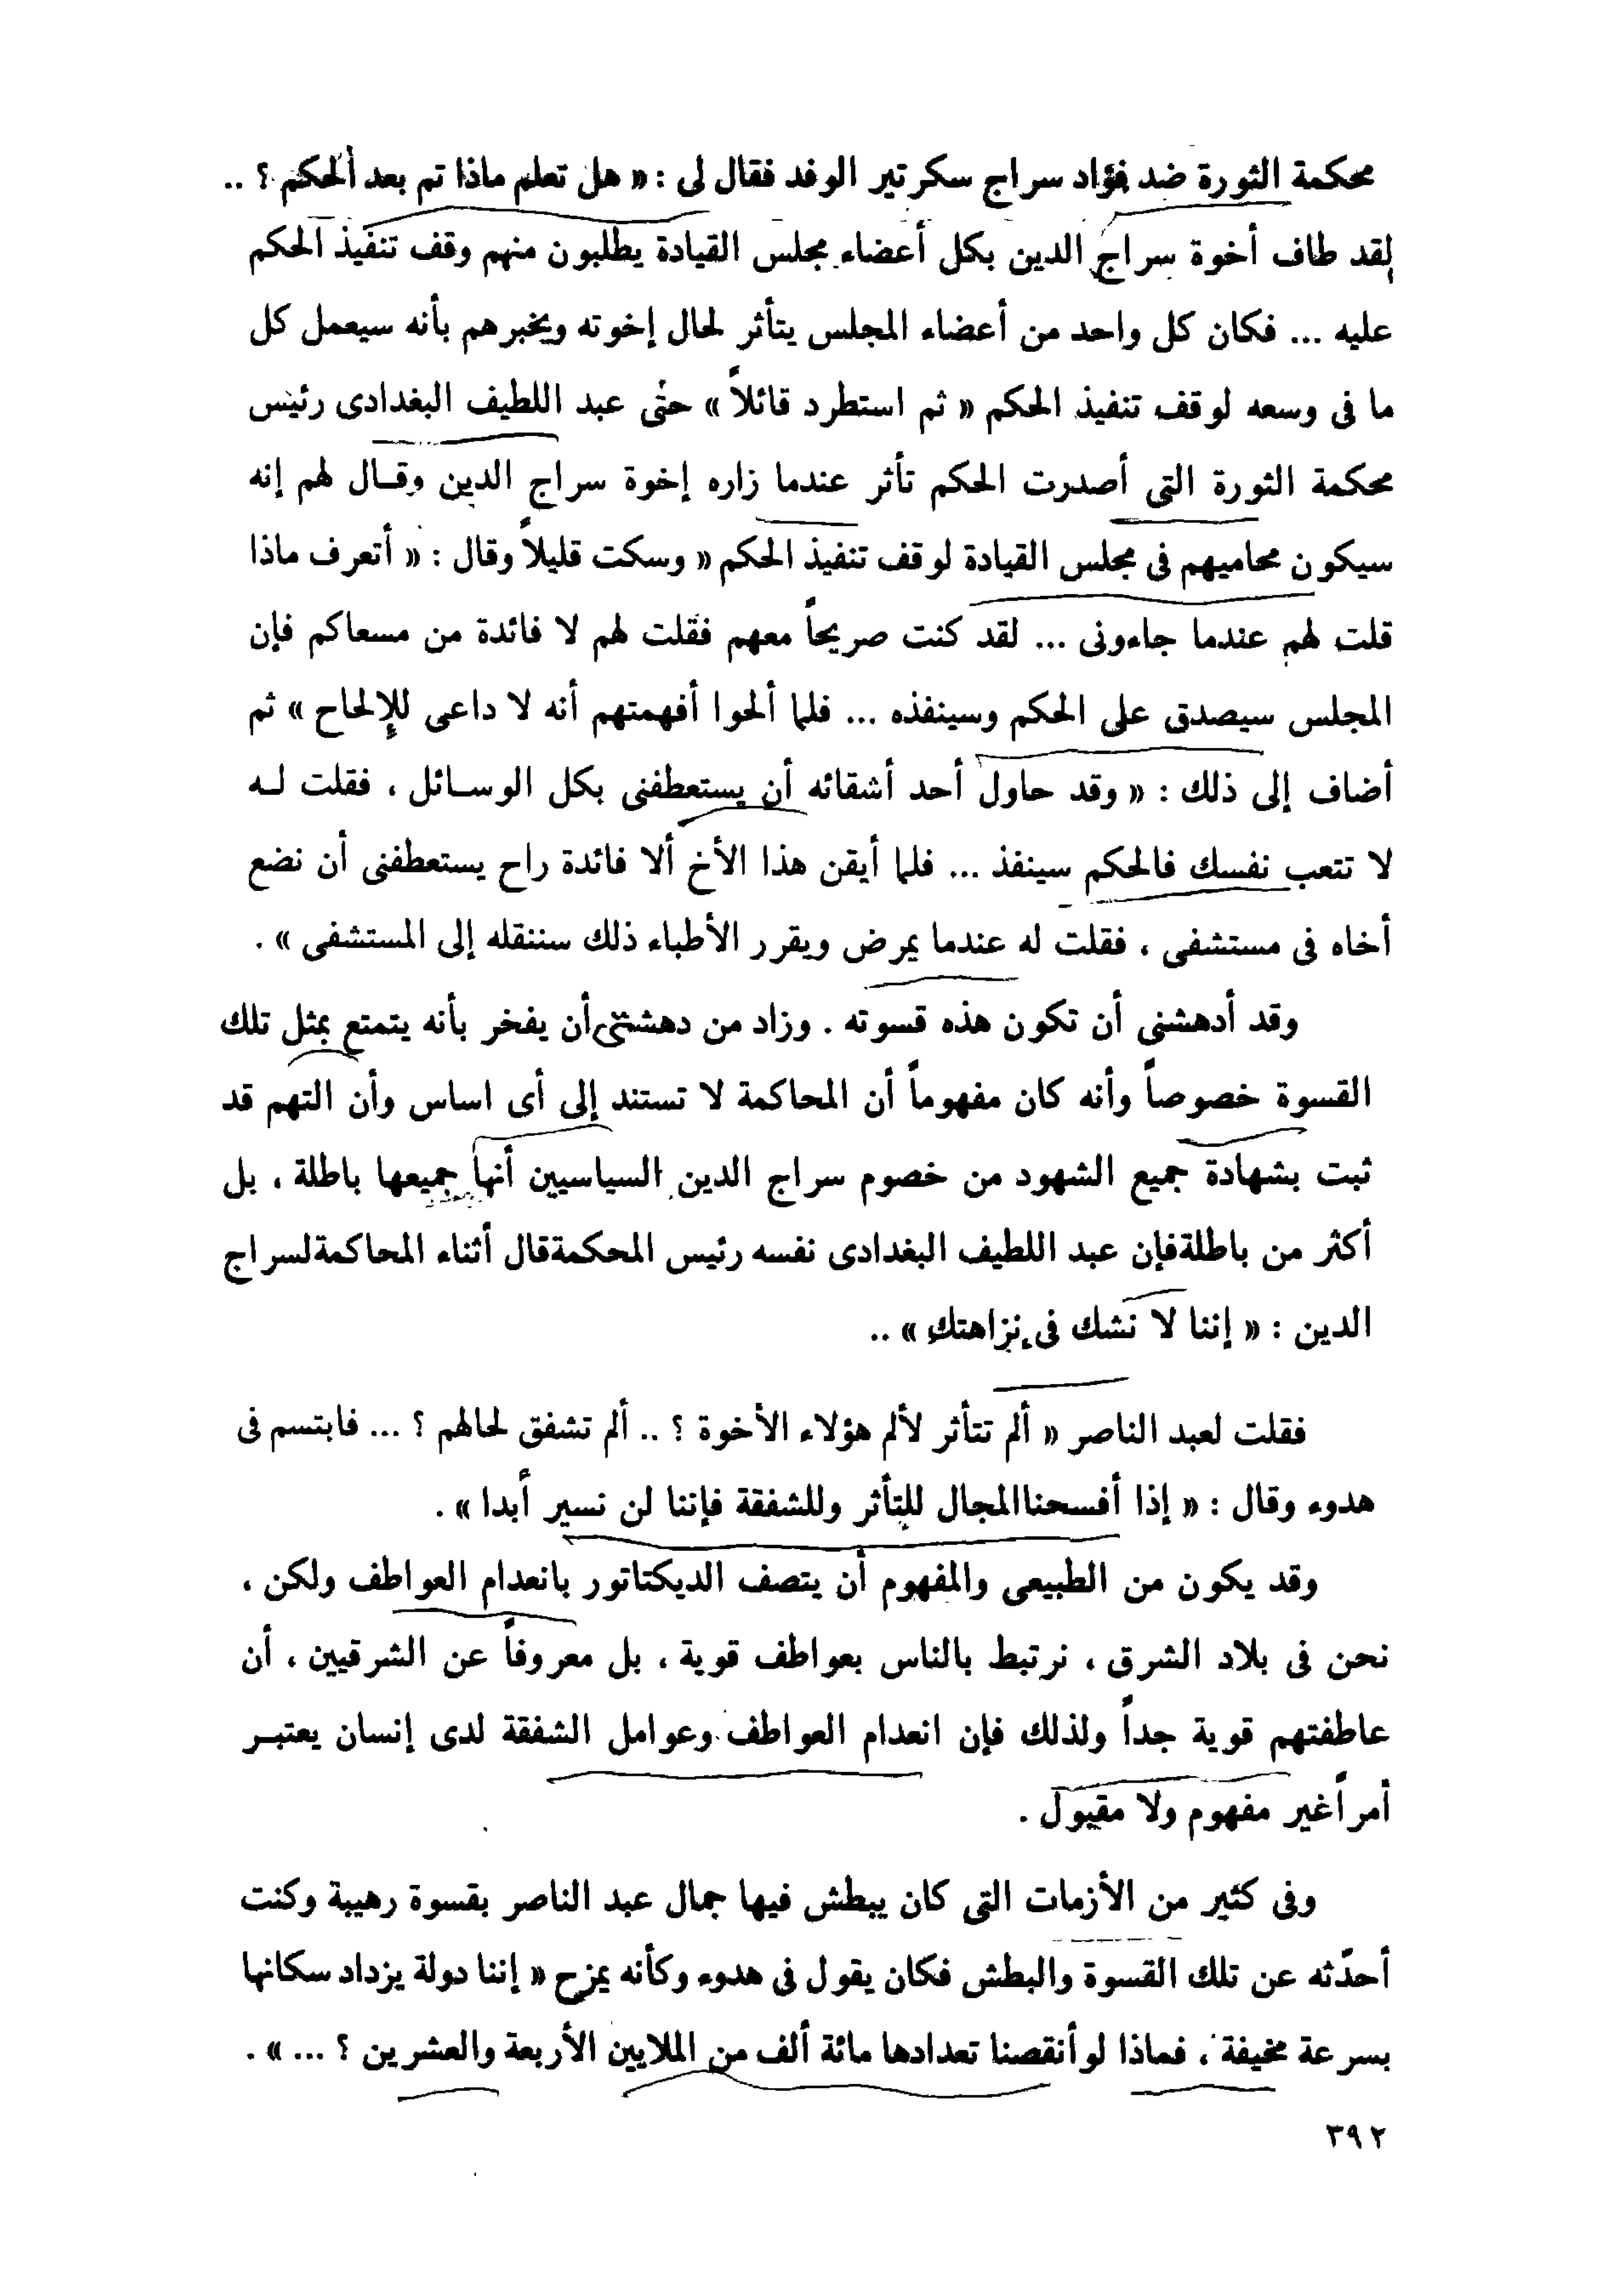 محكمة الثورة ضد فؤاد سراج سكرتير الوفد فقال لى : « هل تعلم ماذا تم بعد الحكم ؟ ..
لقد طاف أخوة سراج الدين بكل أعضاء مجلس القيادة يطلبون منهم وقف تنفيذ الحكم
عليه ... فكان كل واحد من أعضاء المجلس يتأثر لحال إخوته ويخبرهم بأنه سيعمل كل
ما فى وسعه لوقف تنفيذ الحكم « ثم استطرد قائلاً » حتى عبد اللطيف البغدادى رئيس
محكمة الثورة التى أصدرت الحكم تأثر عندما زاره إخوة سراج الدين وقال لهم إنه
سيكون محاميهم فى مجلس القيادة لوقف تنفيذ الحكم « وسكت قليلاً وقال : « أتعرف ماذا
قلت لهم عندما جاءونى ... لقد كنت صريحاً معهم فقلت لهم لا فائدة من مسعاكم فإن
المجلس سيصدق على الحكم وسينفذه ... فلما ألحوا أفهمتهم أنه لا داعى للإلحاح » ثم
أضاف إلى ذلك : « وقد حاول أحد أشقائه أن يستعطفنى بكل الوسائل ، فقلت له
لا تتعب نفسك فالحكم سينفذ ... فلما أيقن هذا الأخ ألا فائدة راح يستعطفنى أن نضع
أخاه فى مستشفى ، فقلت له عندما يمرض ويقرر الأطباء ذلك سننقله إلى المستشفى » .
وقد أدهشنى أن تكون هذه قسوته . وزاد من دهشتى أن يفخر بأنه يتمتع بمثل تلك
القسوة خصوصاً وأنه كان مفهوماً أن المحاكمة لا تستند إلى أى اساس وأن التهم قد
ثبت بشهادة جميع الشهود من خصوم سراج الدين السياسيين أنها جميعها باطلة ، بل
أكثر من باطلة فإن عبد اللطيف البغدادى نفسه رئيس المحكمة قال أثناء المحاكمة لسراج
الدين : « إننا لا نشك فى نزاهتك » ..
فقلت لعبد الناصر « ألم تتأثر لألم هؤلاء الأخوة ؟ .. ألم تشفق لحالهم ؟ ... فابتسم فى
هدوء وقال : « إذا أفسحنا المجال للتأثر وللشفقة فإننا لن نسير أبدا » .
وقد يكون من الطبيعى والمفهوم أن يتصف الديكتاتور بانعدام العواطف ولكن ،
نحن فى بلاد الشرق ، نرتبط بالناس بعواطف قوية ، بل معروفاً عن الشرقيين ، أن
عاطفتهم قوية جداً ولذلك فإن انعدام العواطف وعوامل الشفقة لدى إنسان يعتبر
أمراً غير مفهوم ولا مقبول .
وفى كثير من الأزمات التى كان يبطش فيها جمال عبد الناصر بقسوة رهيبة وكنت
أحدّثه عن تلك القسوة والبطش فكان يقول فى هدوء وكأنه يمزح « إننا دولة يزداد سكانها
بسرعة مخيفة ، فماذا لو أنقصنا تعدادها مائة ألف من الملايين الأربعة والعشرين ؟ ... » .
٣٩٢